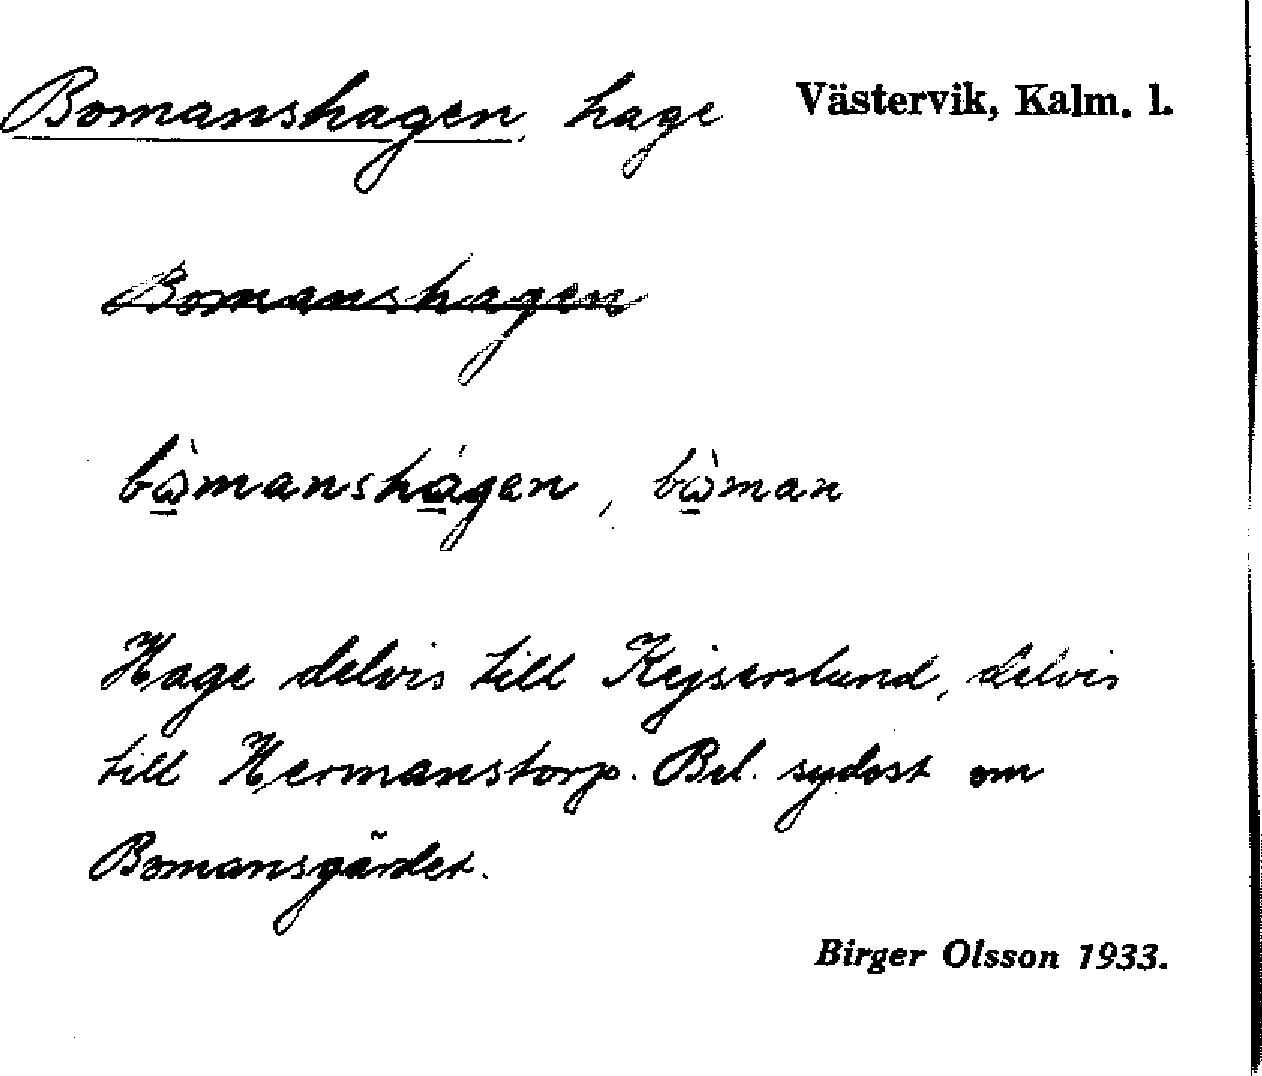 Bomanshagen, hage Västervik, Kalm. l.
Bomanshagen
bὼ̲manshá̲gen, bὼ̲man
Hage delvis till Kejserslund, delvis
till Hermanstorp. Bel. sydost om
Bomansgärdet.
Birger Olsson 1933.